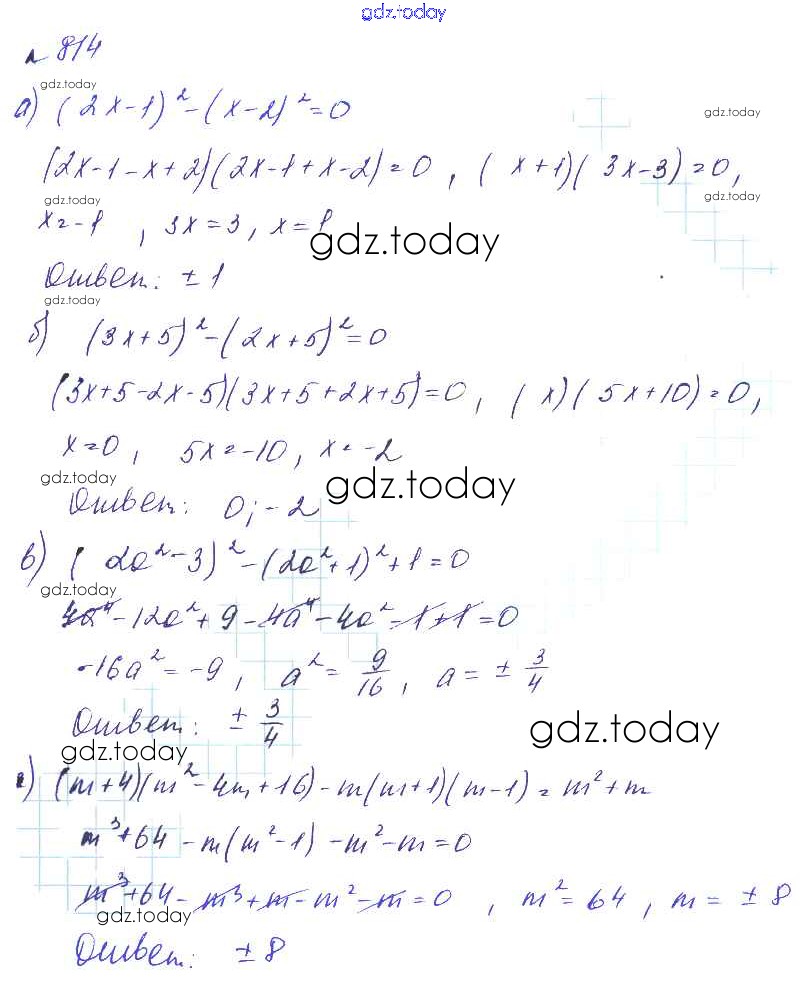 gdz.today
№ 814
gdz.today
а) (2x-1)² - (x-2)² = 0
gdz.today
(2x-1-x+2)(2x-1+x-2) = 0, (x+1)(3x-3) = 0,
gdz.today
gdz.today
x = -1, 3x = 3, x = 1
gdz.today
Ответ: ± 1
gdz.today
б) (3x+5)² - (2x+5)² = 0
(3x+5-2x-5)(3x+5+2x+5) = 0, (x)(5x+10) = 0,
x = 0, 5x = -10, x = -2
gdz.today
gdz.today
Ответ: 0; -2
в) (2a²-3)² - (2a²+1)² + 1 = 0
gdz.today
4a⁴ - 12a² + 9 - 4a⁴ - 4a² - 1 + 1 = 0
-16a² = -9, a² = 9/16, a = ± 3/4
Ответ: ± 3/4
gdz.today
gdz.today
г) (m+4)(m²-4m+16) - m(m+1)(m-1) = m² + m
m³ + 64 - m(m²-1) - m² - m = 0
m³ + 64 - m³ + m - m² - m = 0, m² = 64, m = ± 8
gdz.today
Ответ: ± 8